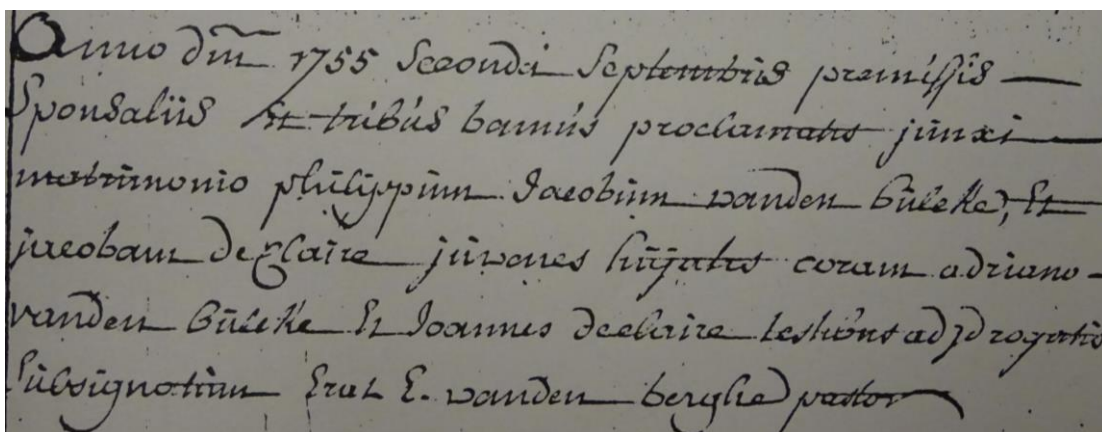 Anno dni 1755 Secondi Septembris premissis
Sponsaliis Et tribus bannis proclamatis junxi
matrimonio philippum Jacobum vanden bulcke, Et
jacobam declaire juvenes hujatis coram adriano
vanden bulcke Et Joannes declaire testibus ad id rogatis
subsignatum Erat E. vanden berghe pastor